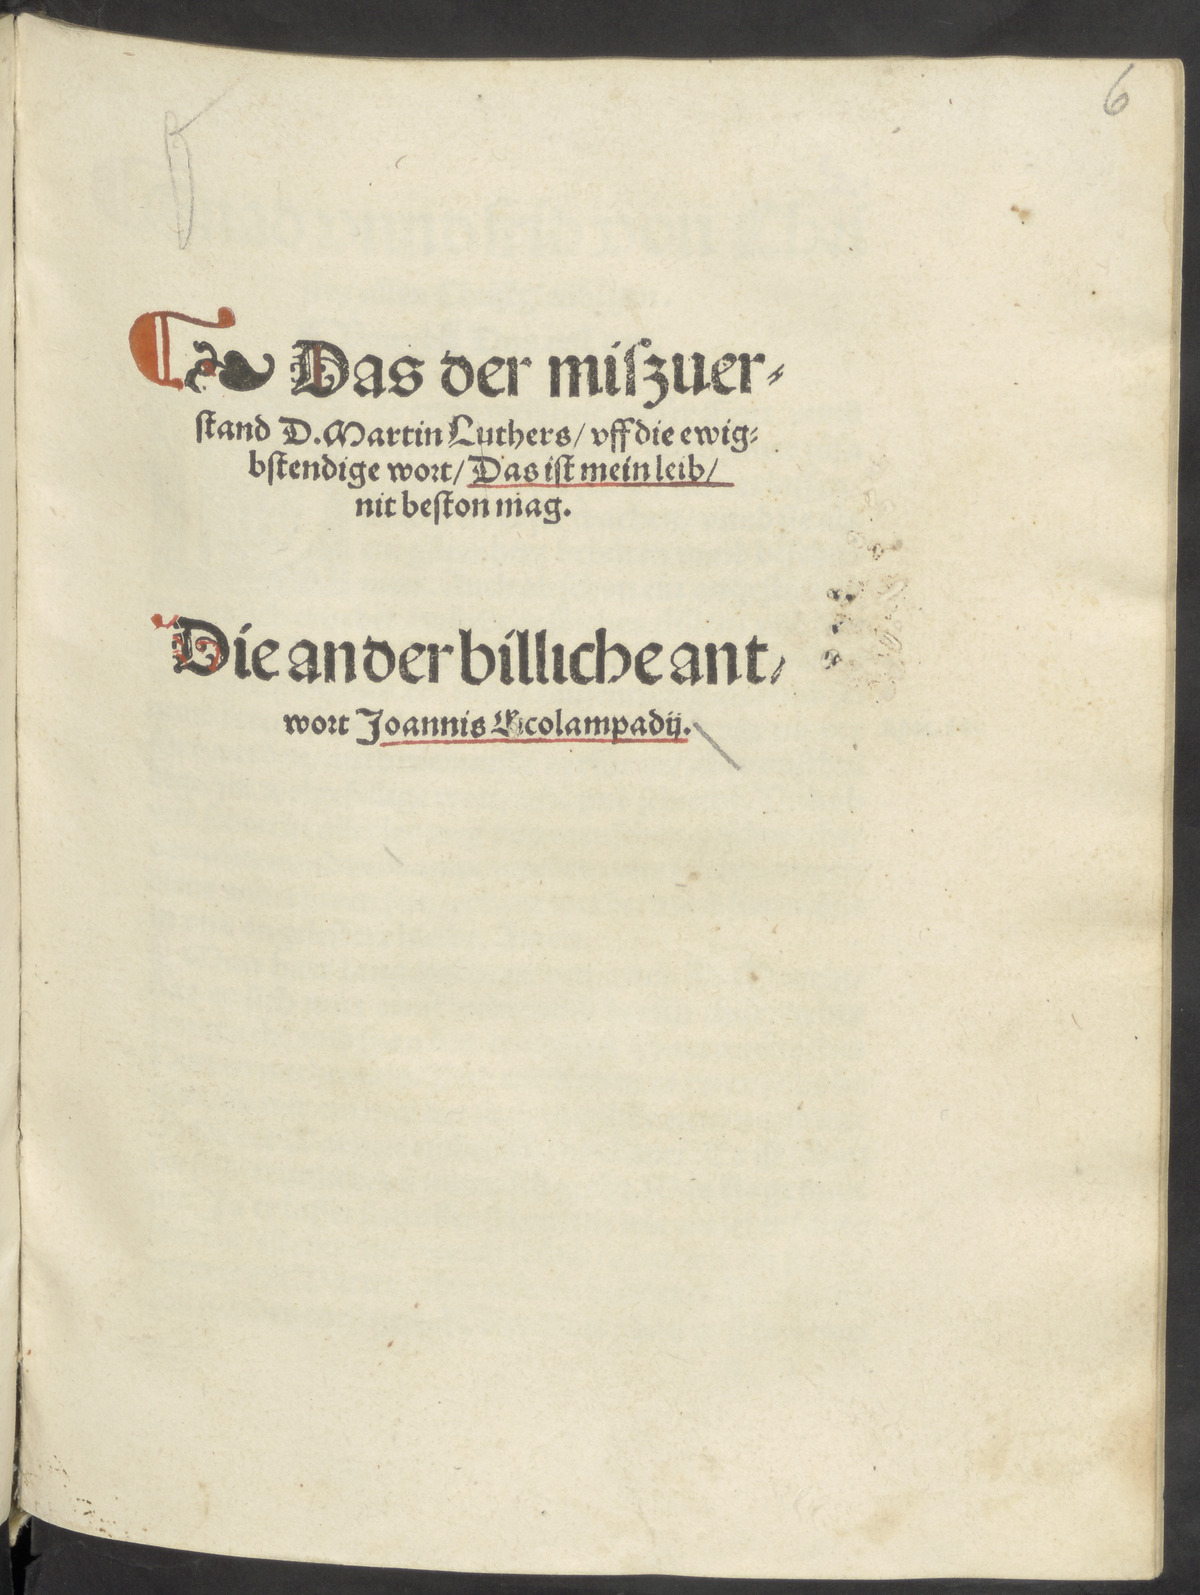 6
Das der miſzuer⸗
ſtand D. Martin Luthers/ vff die ewig⸗
bſtendige wort/ Das iſt mein leib/
nit beſton mag.
Die ander billiche ant⸗
wort Joannis Ecolampadij.